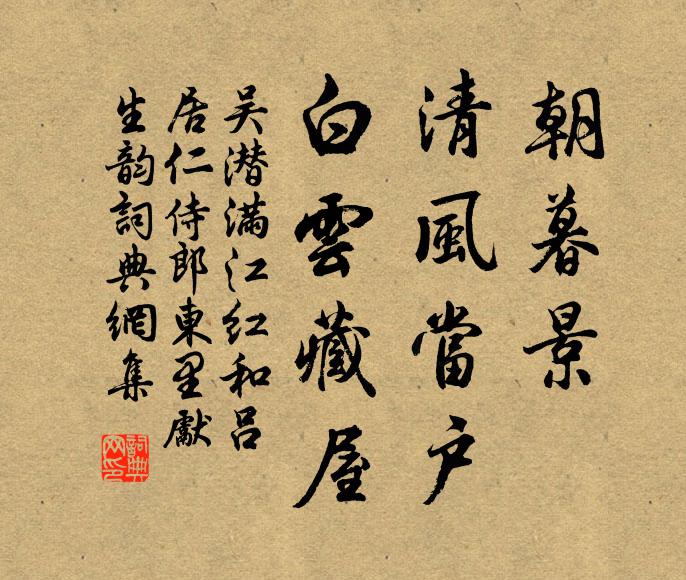 朝暮景
清風當戶
白雲藏屋
吴潜滿江红和吕
居仁侍郎東里獻
生韵詞典網集
詞典
网印